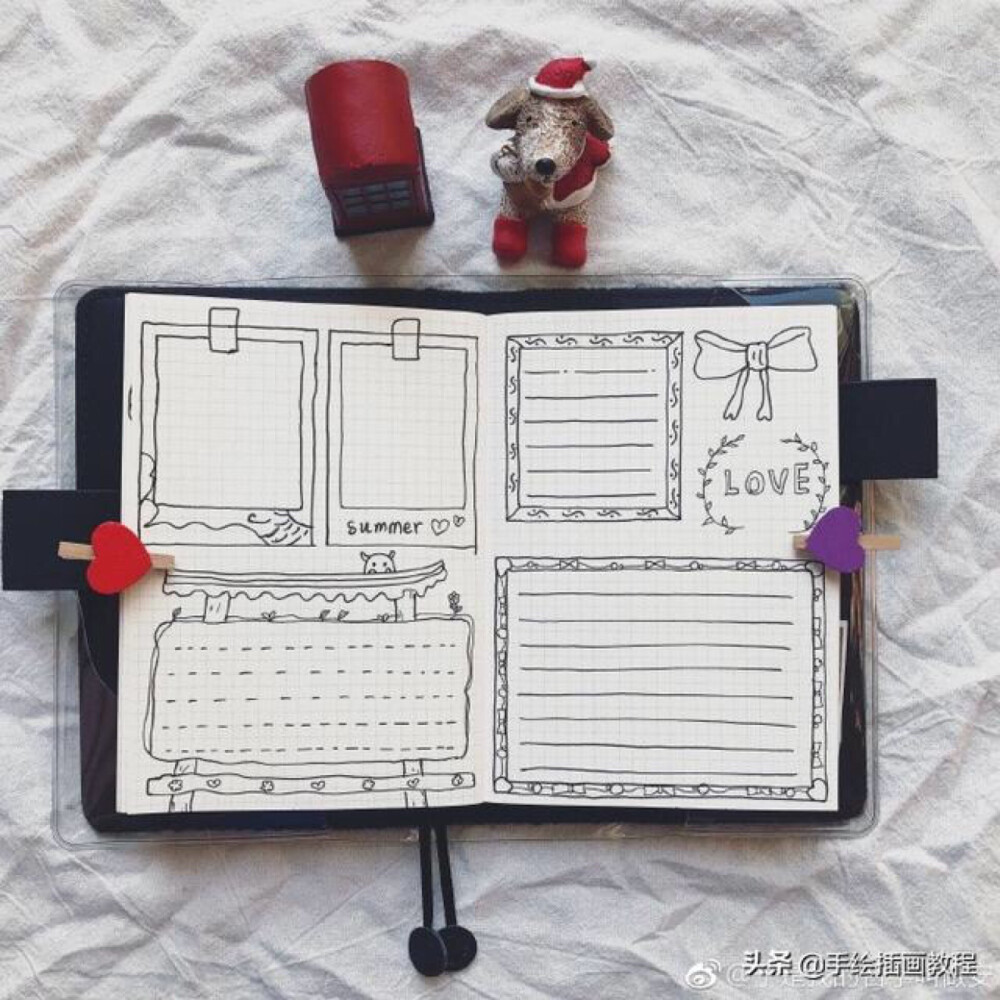 summer
LOVE
头条 @手绘插画教程